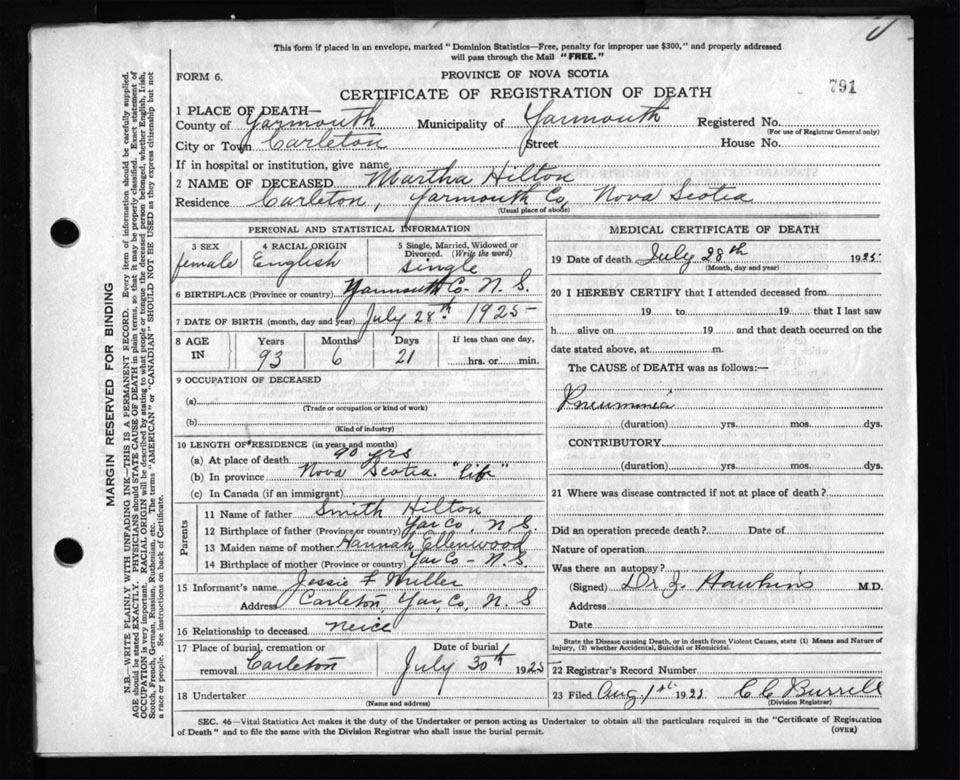 This form if placed in an envelope, marked "Dominion Statistics—Free, penalty for improper use $300," and properly addressed
will pass through the Mail "FREE."
FORM 6.
PROVINCE OF NOVA SCOTIA
CERTIFICATE OF REGISTRATION OF DEATH
791
1 PLACE OF DEATH—
County of Yarmouth Municipality of Yarmouth Registered No.
(For use of Registrar General only)
City or Town Carleton Street House No.
If in hospital or institution, give name
2 NAME OF DECEASED Martha Hilton
Residence Carleton, Yarmouth Co, Nova Scotia
(Usual place of abode)
PERSONAL AND STATISTICAL INFORMATION
3 SEX
female
4 RACIAL ORIGIN
English
5 Single, Married, Widowed or
Divorced. (Write the word)
Single
6 BIRTHPLACE (Province or country) Yarmouth Co- N. S.
7 DATE OF BIRTH (month, day and year) July 28th 1925-
8 AGE
IN
Years
93
Months
6
Days
21
If less than one day,
hrs. or min.
9 OCCUPATION OF DECEASED
(a)
(Trade or occupation or kind of work)
(b)
(Kind of industry)
10 LENGTH OF RESIDENCE (in years and months)
(a) At place of death 90 yrs
(b) In province Nova Scotia. "life"
(c) In Canada (if an immigrant)
Parents
11 Name of father Smith Hilton
12 Birthplace of father (Province or country) Yar Co, N. S.
13 Maiden name of mother Hannah Ellenwood
14 Birthplace of mother (Province or country) Yar Co - N. S.
15 Informant's name Jessie F
Address Carleton, Yar, Co, N. S
16 Relationship to deceased neice
17 Place of burial, cremation or
removal Carleton
Date of burial
July 30th 1925
18 Undertaker
(Name and address)
MEDICAL CERTIFICATE OF DEATH
19 Date of death July 28th 1925
(Month, day and year)
20 I HEREBY CERTIFY that I attended deceased from
19 to 19 that I last saw
h alive on 19 and that death occurred on the
date stated above, at m.
The CAUSE of DEATH was as follows:—
Pneuminia
(duration) yrs. mos. dys.
CONTRIBUTORY
(duration) yrs. mos. dys.
21 Where was disease contracted if not at place of death?
Did an operation precede death? Date of
Nature of operation
Was there an autopsy?
(Signed) Dr J. Hawkins M.D.
Address
Date
State the Disease causing Death, or in death from Violent Causes, state (1) Means and Nature of
Injury, (2) whether Accidental, Suicidal or Homicidal.
22 Registrar's Record Number
23 Filed Aug 1st 1925 C C Burrell
(Division Registrar)
SEC. 46—Vital Statistics Act makes it the duty of the Undertaker or person acting as Undertaker to obtain all the particulars required in the "Certificate of Registration
of Death" and to file the same with the Division Registrar who shall issue the burial permit.
(OVER)
MARGIN RESERVED FOR BINDING
N.B.—WRITE PLAINLY WITH UNFADING INK—THIS IS A PERMANENT RECORD. Every item of information should be carefully supplied.
AGE should be stated EXACTLY. PHYSICIANS should STATE CAUSE OF DEATH in plain terms, so that it may be properly classified. Exact statement of
OCCUPATION is very important. RACIAL ORIGIN will be described by stating to what people or tongue the deceased person belonged, whether English, Irish,
Scotch, French, German, Russian, Ruthenian, etc. The terms "AMERICAN" or "CANADIAN" SHOULD NOT BE USED as they express citizenship but not
a race or people. See instructions on back of Certificate.